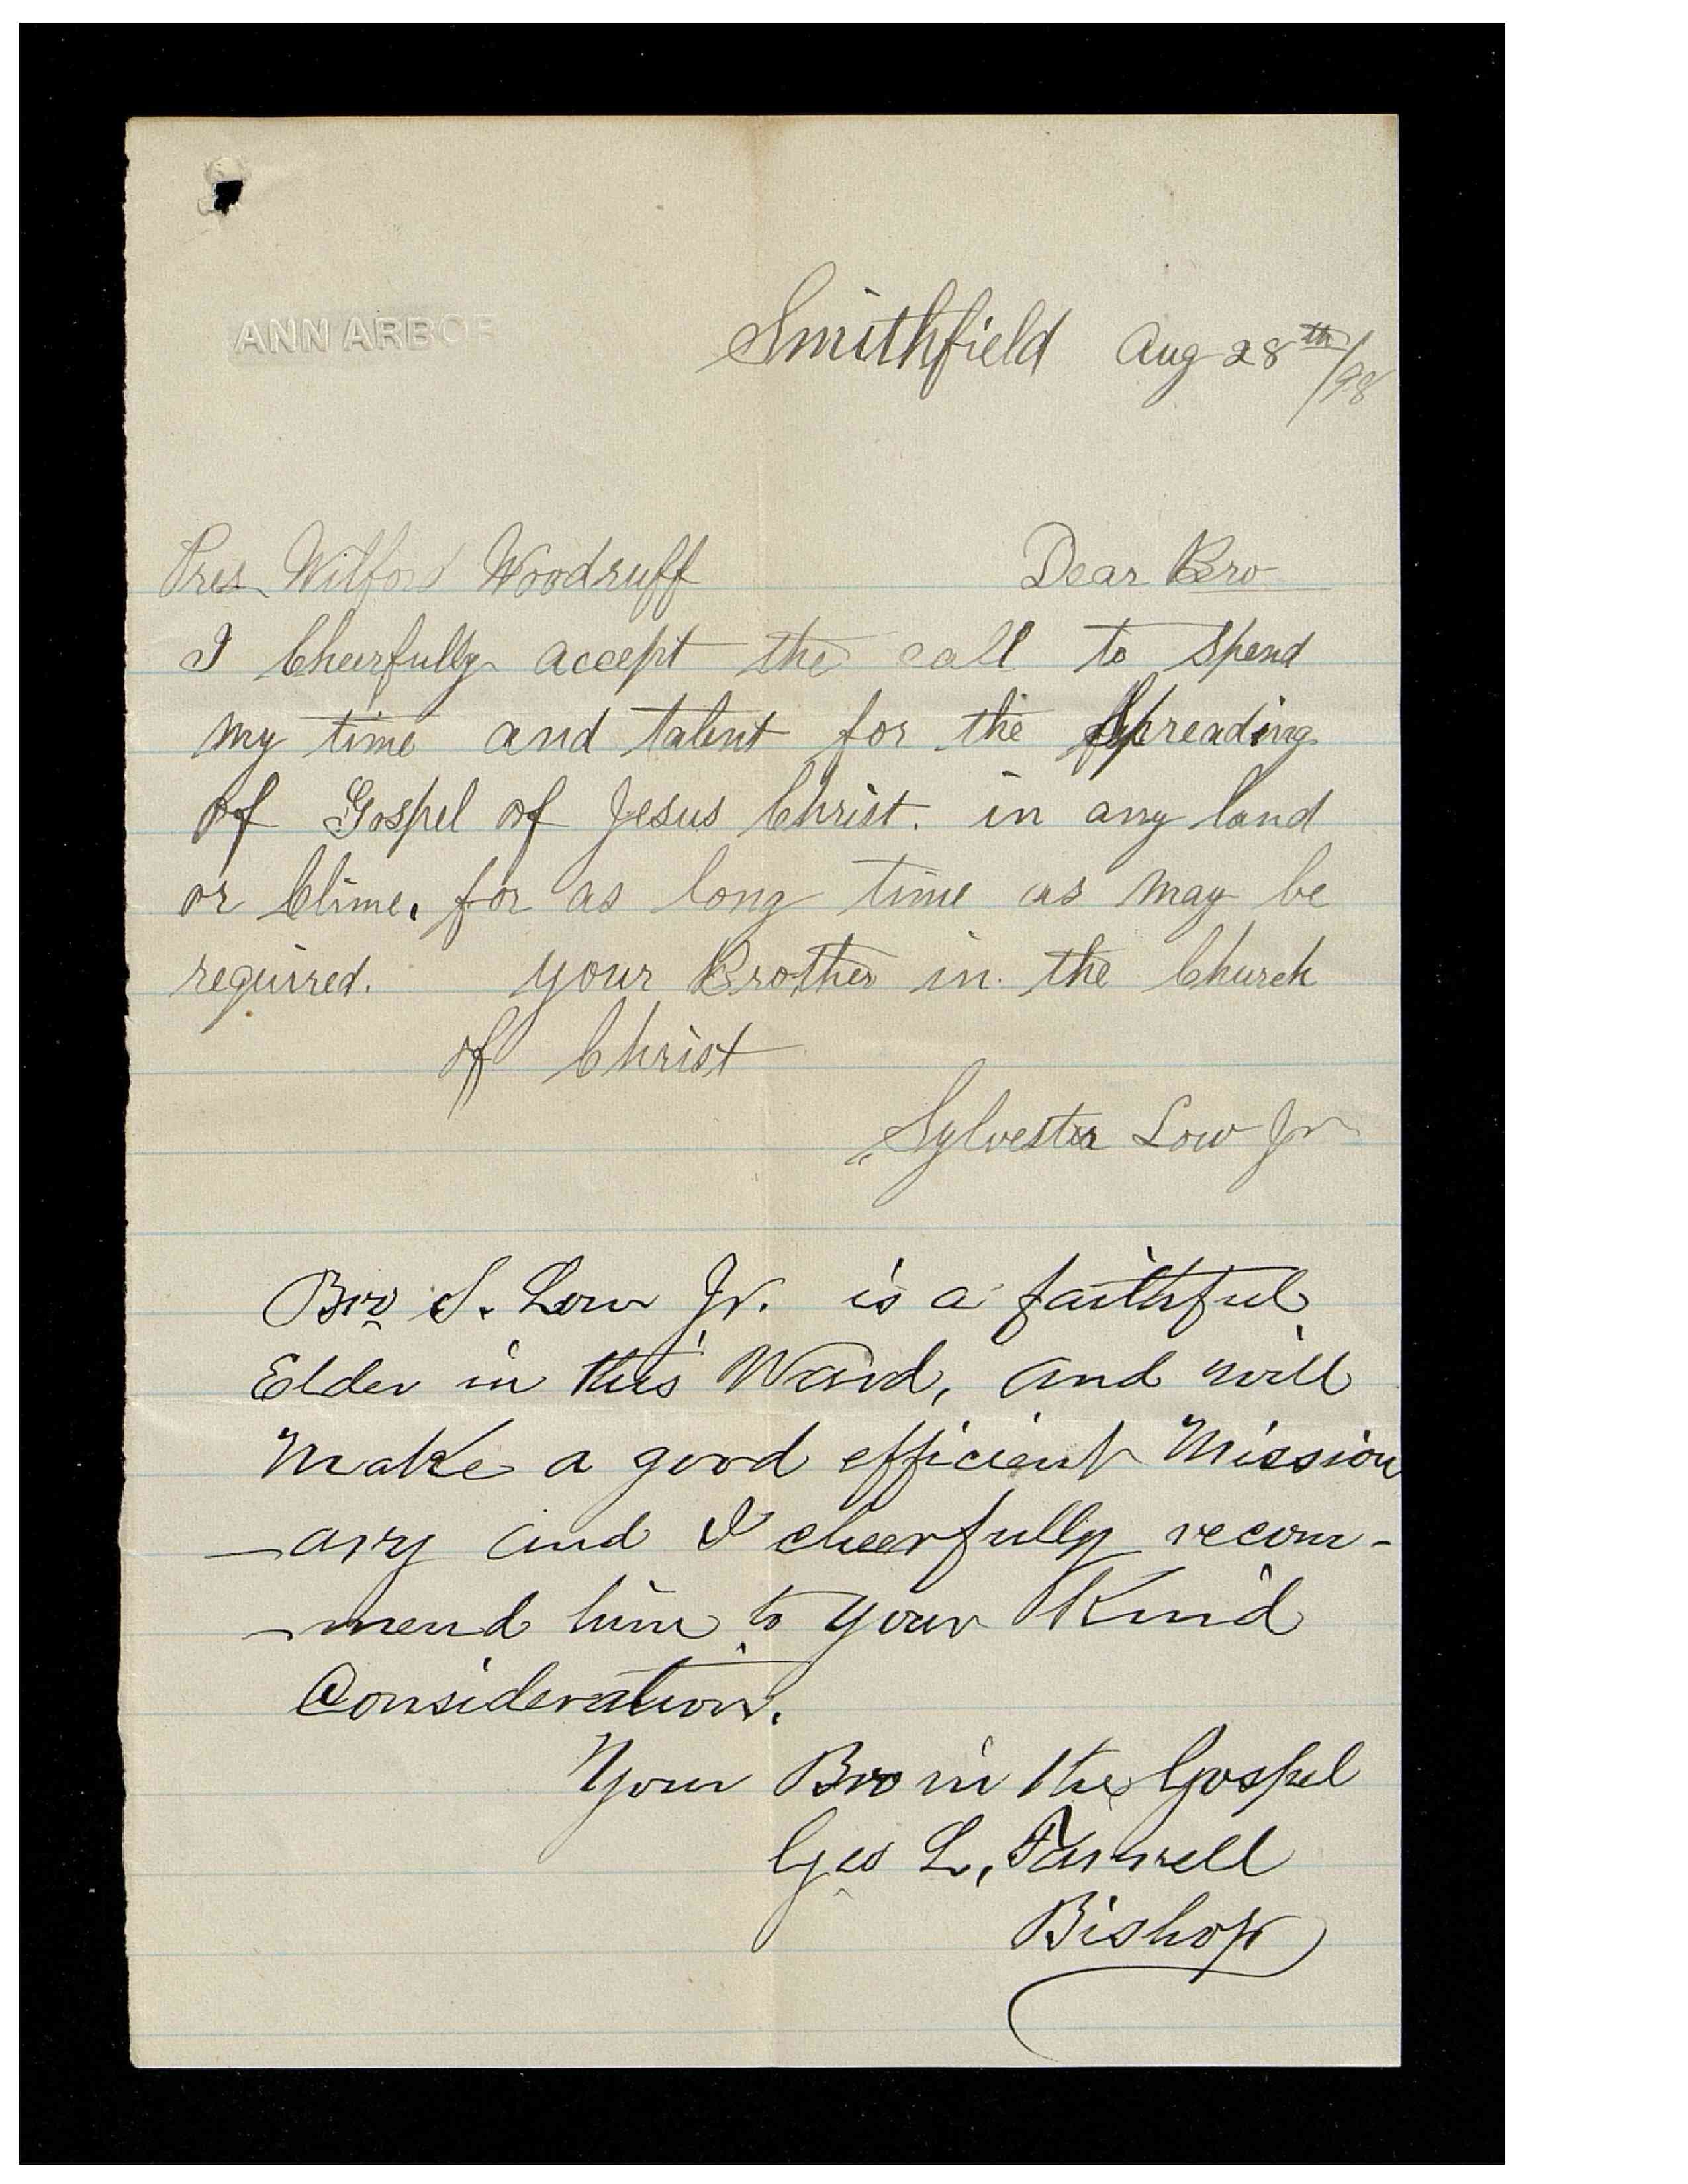 ANN ARBOR
Smithfield Aug 28th/98
Pres Wilford Woodruff Dear Bro
I Cheerfully accept the call to Spend
my time and talent for the Spreading
of Gospel of Jesus Christ. in any land
or Clime. for as long time as may be
required. your Brother in the Church
of Christ
Sylvester Low Jr
Bro S. Low Jr. is a faithful
Elder in this Ward, and will
Make a good efficient Mission
-ary and I cheerfully recom-
-mend him to your Kind
Consideration.
Your Bro in the Gospel
Geo L, Farrell
Bishop